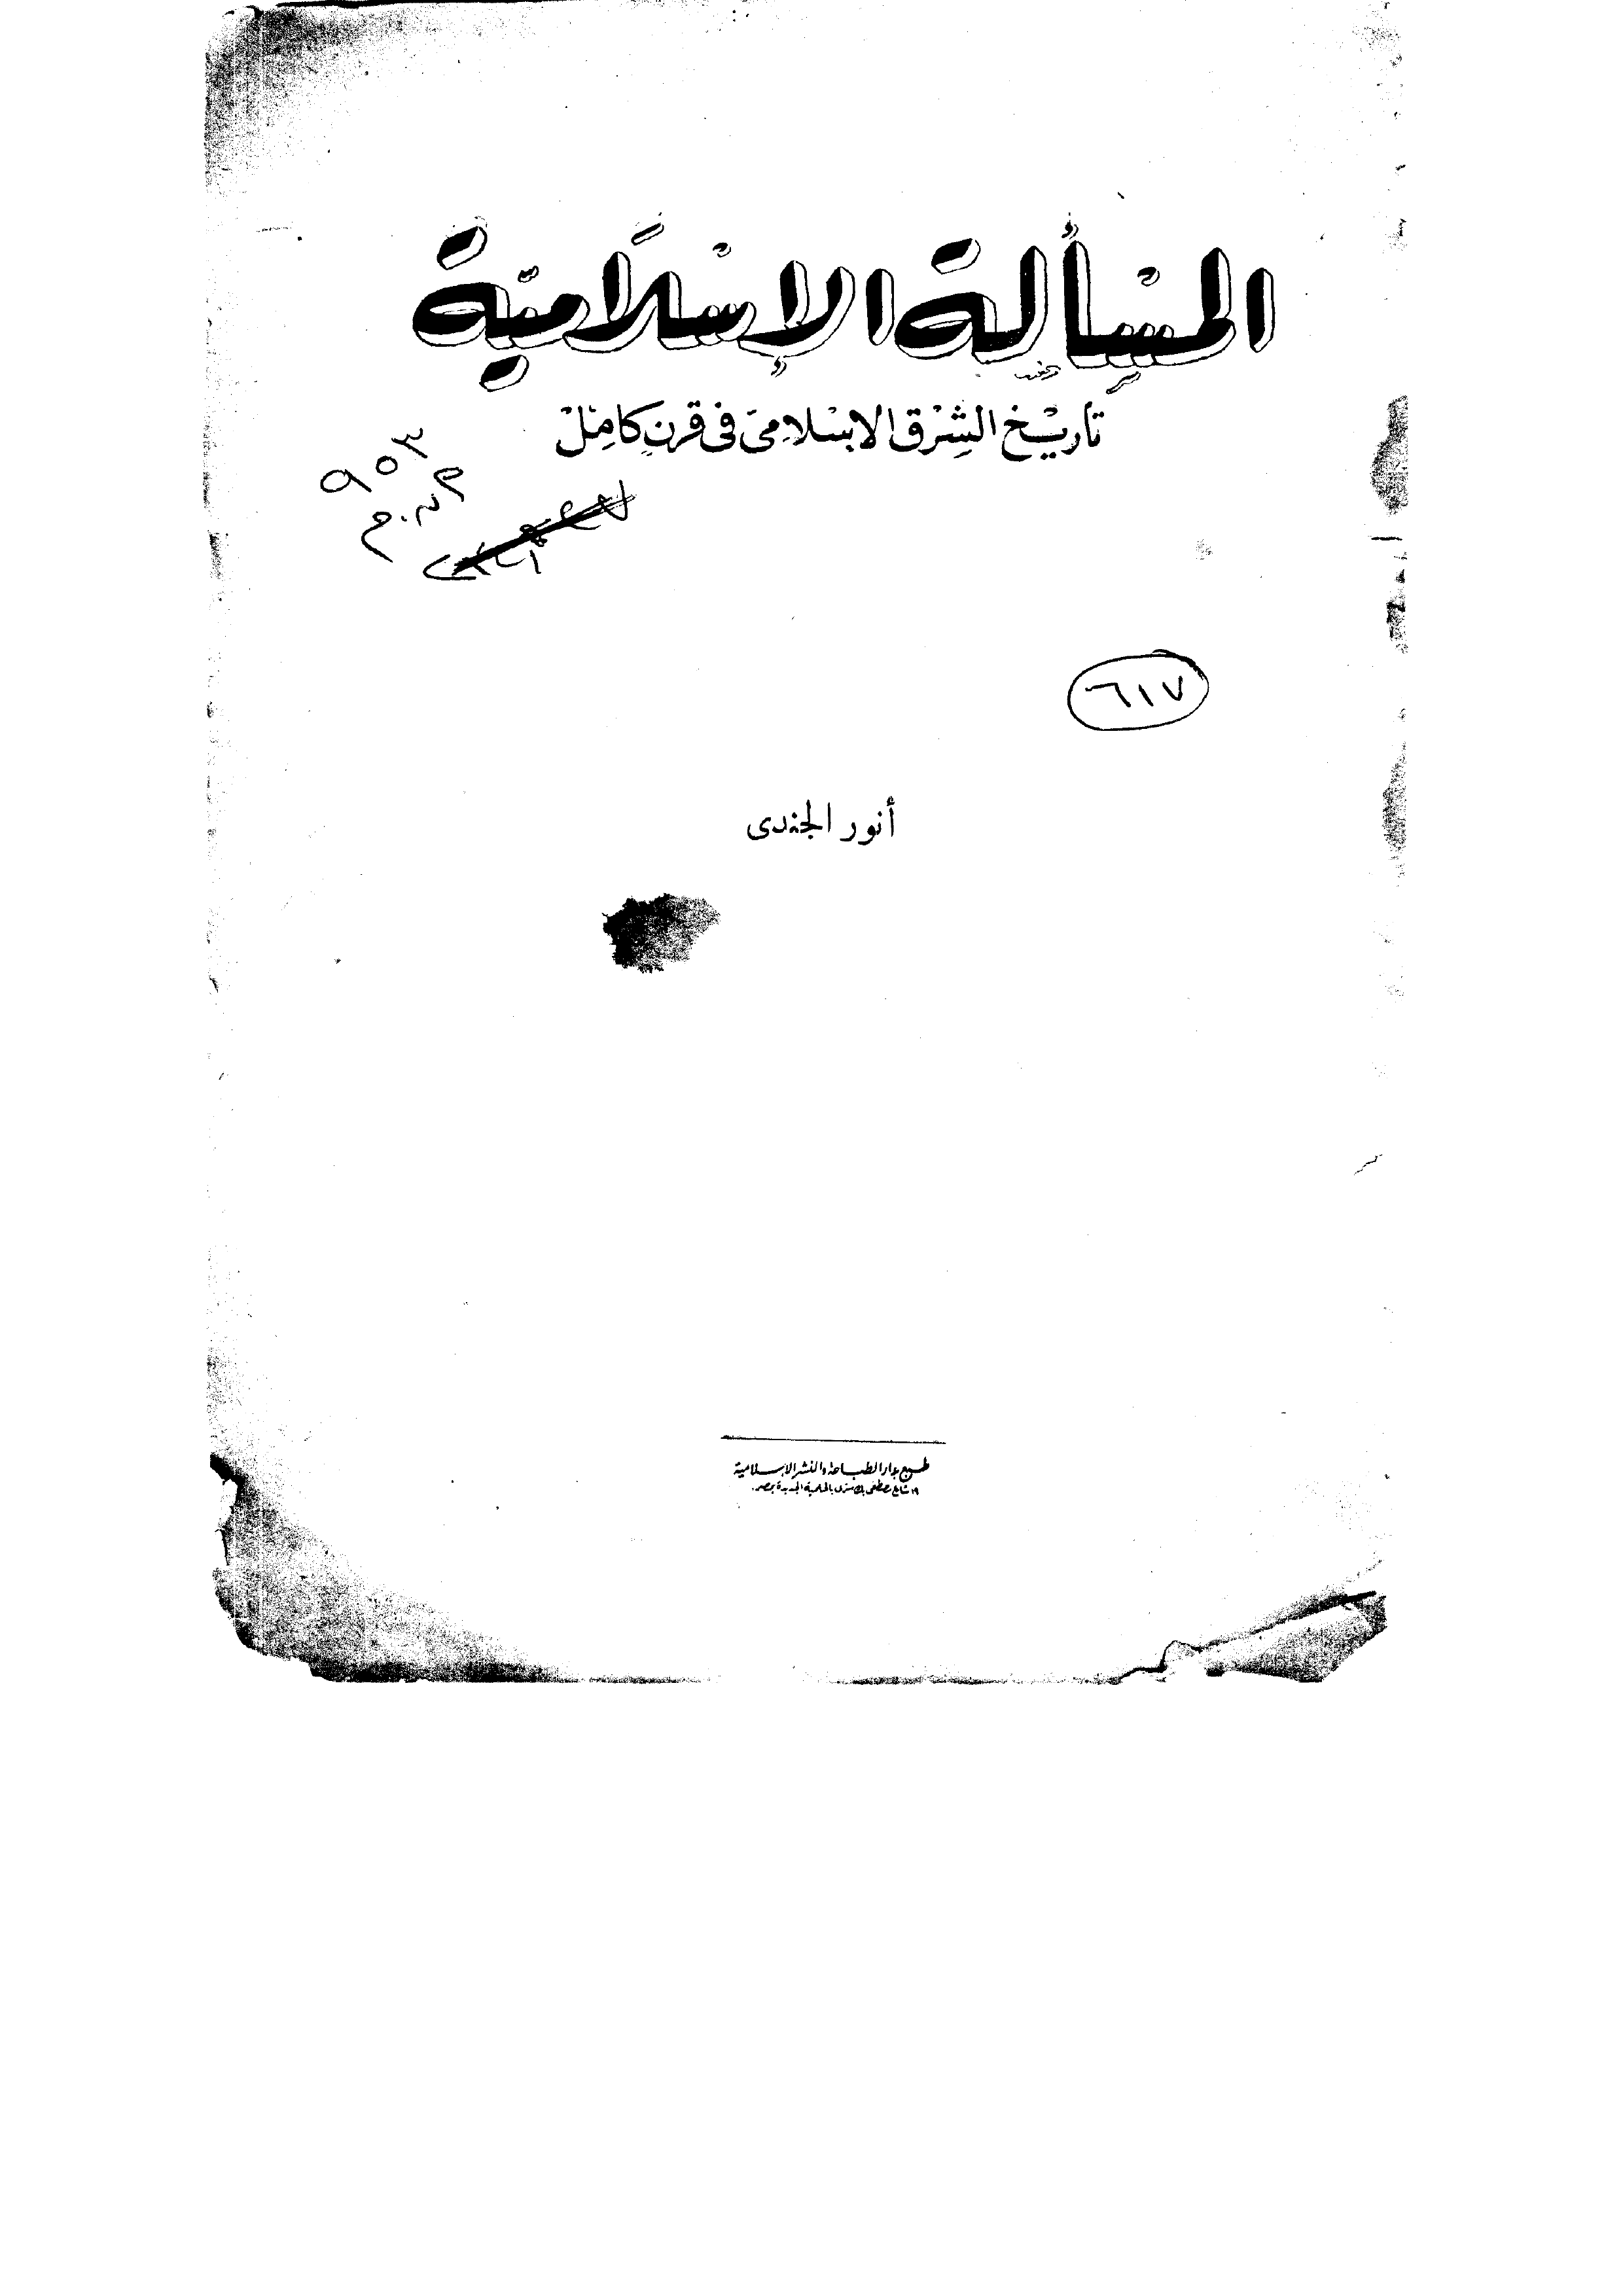 المسألة الإسلامية
تاريخ الشرق الإسلامى فى قرن كامل
٩٥٣
٦١٧
أنور الجندى
طبع بدار الطباعة والنشر الإسلامية
شارع مصطفى بالحلمية الجديدة بمصر